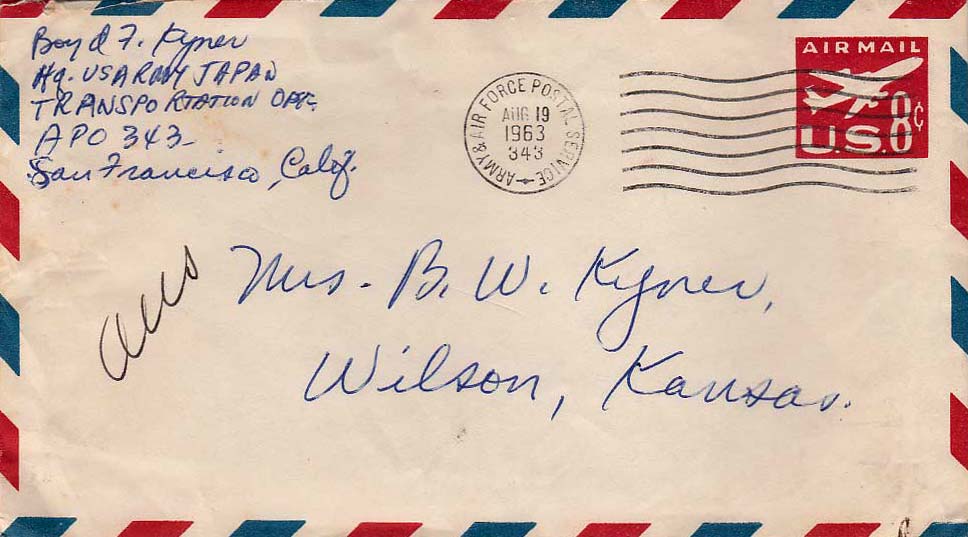 Boyd F. Kyner
Hq. US ARMY JAPAN
TRANSPORTATION OFF.
APO 343
San Francisco, Calif.
ARMY & AIR FORCE POSTAL SERVICE
AUG 19
1963
343
AIR MAIL
U.S. 8¢
Mrs. B. W. Kyner,
Wilson, Kansas.